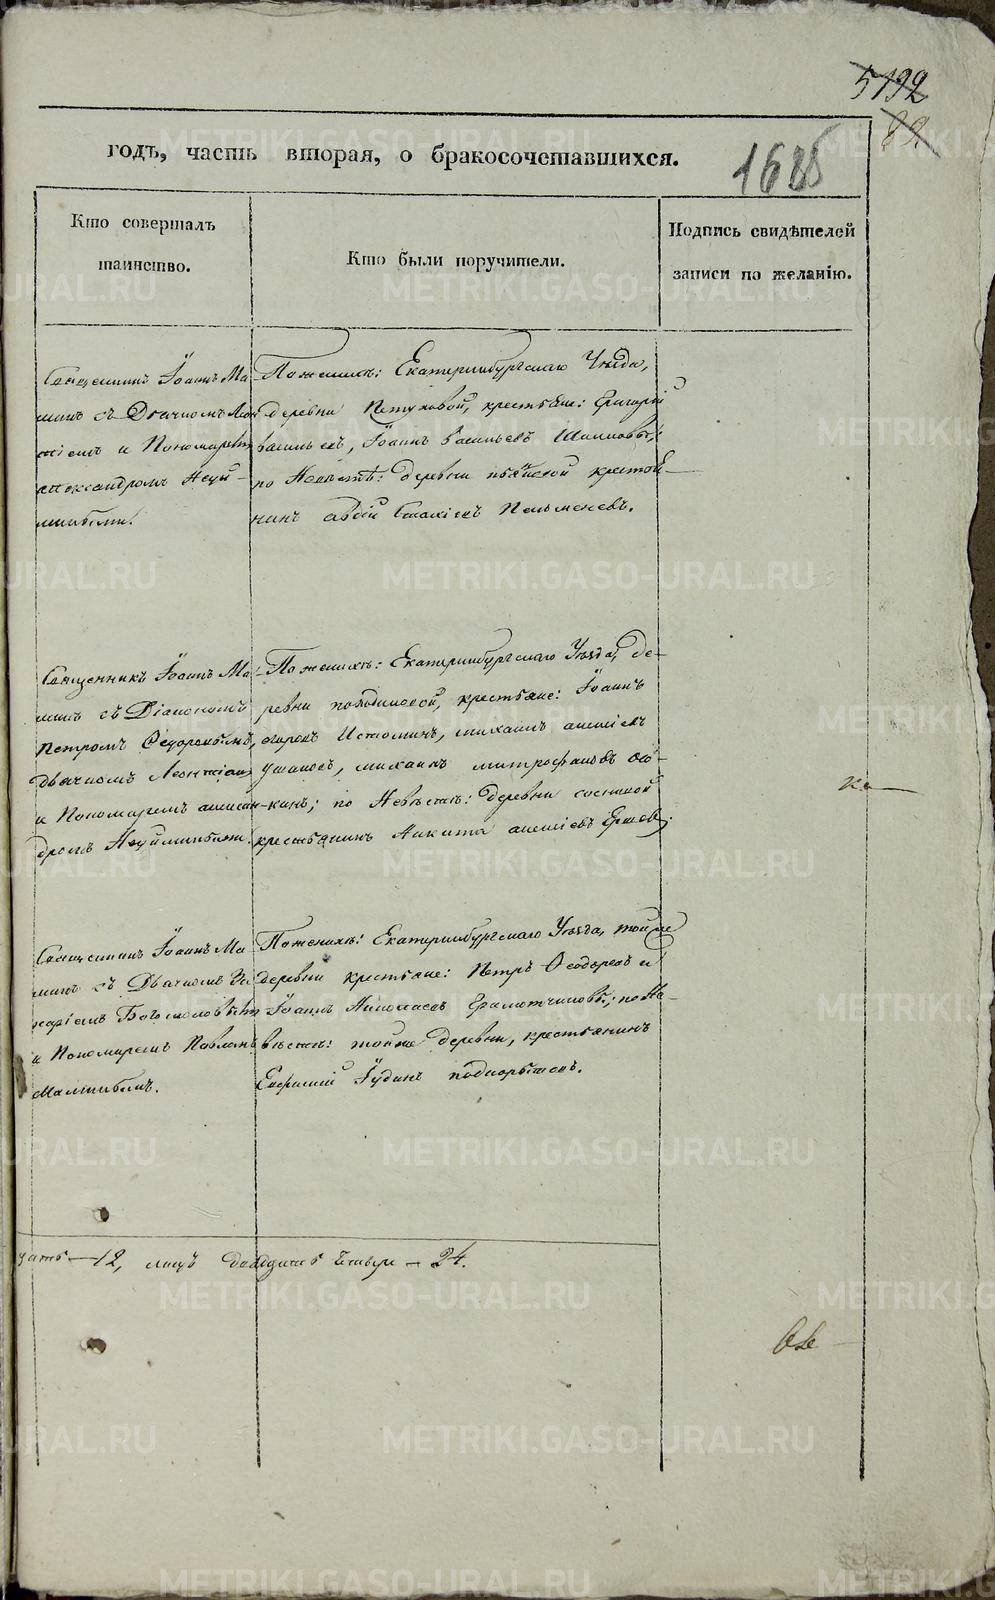 5192
82
1688
годъ, часть вторая, о бракосочетавшихся.
Кто совершалъ
таинство.
Кто были поручители.
Подпись свидѣтелей
записи по желанію.
Священникъ Іоаннъ Ма
минъ съ Дьячкомъ Леон
тіемъ и Пономаремъ
Александромъ Неуй-
минымъ.
По женихѣ: Екатеринбургскаго Уѣзда,
деревни Пѣтуховой, крестьяне: Григорій
Васильевъ, Іоаннъ Васильевъ
по Невѣстѣ: деревни крестья-
нинъ Авдій Пельменевъ.
Священникъ Іоаннъ Ма-
минъ съ Діакономъ
Петромъ Ѳедоровымъ,
Дьячкомъ Леонтіемъ
и Пономаремъ Алексан-
дромъ Неуйминымъ.
По женихѣ: Екатеринбургскаго Уѣзда, де-
ревни крестьяне: Іоаннъ
Истоминъ, Михаилъ
Ушаковъ, Михаилъ Митрофановъ
кинъ; по Невѣстѣ: деревни
крестьянинъ Никита Ершовъ.
Священникъ Іоаннъ Ма-
минъ съ Дьячкомъ За
харіемъ Богомоловымъ
и Пономаремъ Павломъ
По женихѣ: Екатеринбургскаго Уѣзда, той же
деревни крестьяне: Петръ Ѳеодоровъ и
Іоаннъ по Не-
вѣстѣ: той же деревни, крестьянинъ
Евфимій Іудинъ Подкорытовъ.
12, лицъ двадцать четыре - 24.
METRIKI.GASO-URAL.RU